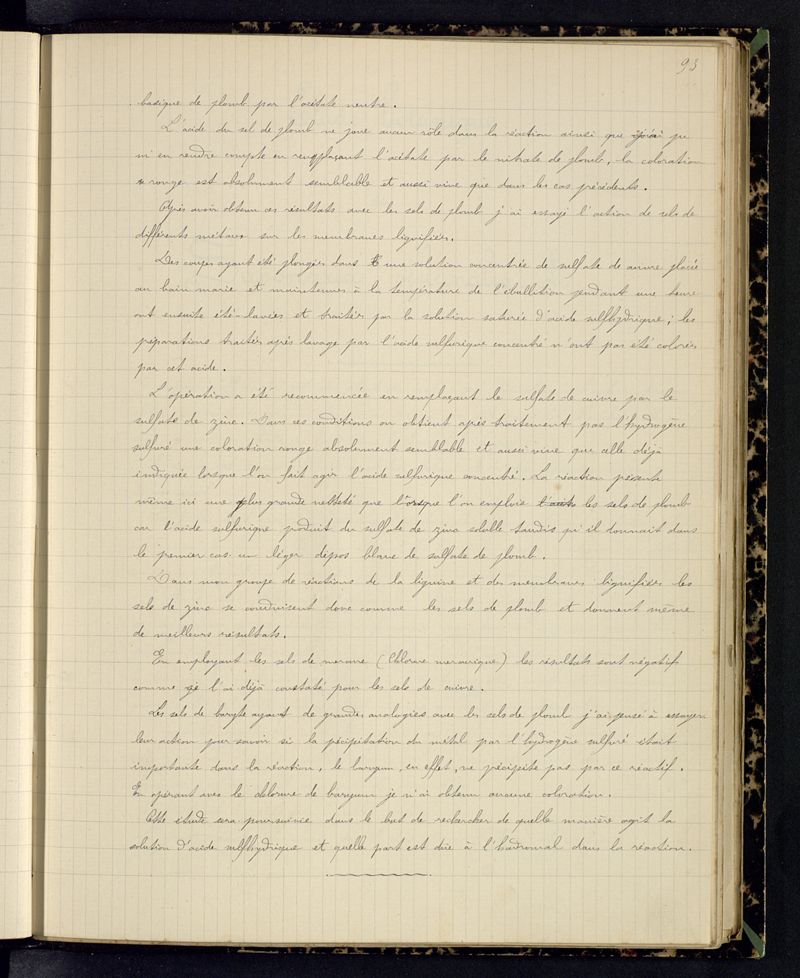 93
basique de plomb par l'acétate neutre.
L'acide du sel de plomb ne joue aucun rôle dans la réaction ainsi que j'ai pu
m'en rendre compte en remplaçant l'acétate par le nitrate de plomb, la coloration
rouge est absolument semblable et aussi vive que dans les cas précédents.
Après avoir obtenu ces résultats avec les sels de plomb j'ai essayé l'action de sels de
différents métaux sur les membranes lignifiées.
Des coupes ayant été plongées dans une solution concentrée de sulfate de cuivre placée
au bain marie et maintenues à la température de l'ébullition pendant une heure
ont ensuite été lavées et traitées par la solution saturée d'acide sulfhydrique; les
préparations traitées après lavage par l'acide sulfurique concentré n'ont pas été colorées
par cet acide.
L'opération a été recommencée en remplaçant le sulfate de cuivre par le
sulfate de zinc. Dans ces conditions on obtient après traitement pas l'hydrogène
sulfuré une coloration rouge absolument semblable et aussi vive que celle déjà
indiquée lorsque l'on fait agir l'acide sulfurique concentré. La réaction présente
même ici une plus grande netteté que lorsque l'on emploie les sels de plomb
car l'acide sulfurique produit du sulfate de zinc soluble tandis qu'il donnait dans
le premier cas un léger dépos blanc de sulfate de plomb.
Dans mon groupe de réactions de la lignine et des membranes lignifiées les
sels de zinc se conduisent donc comme les sels de plomb et donnent même
de meilleurs résultats.
En employant les sels de mercure (Chlorure mercurique) les résultats sont négatifs
comme je l'ai déjà constaté pour les sels de cuivre.
Les sels de baryte ayant de grandes analogies avec les sels de plomb j'ai pensé à essayer
leur action pour savoir si la précipitation du métal par l'hydrogène sulfuré était
importante dans la réaction, le baryum, en effet, ne précipite pas par ce réactif.
En opérant avec le chlorure de baryum je n'ai obtenu aucune coloration.
Cette étude sera poursuivie dans le but de rechercher de quelle manière agit la
solution d'acide sulfhydrique et quelle part est dûe à l'hadromal dans la réaction.